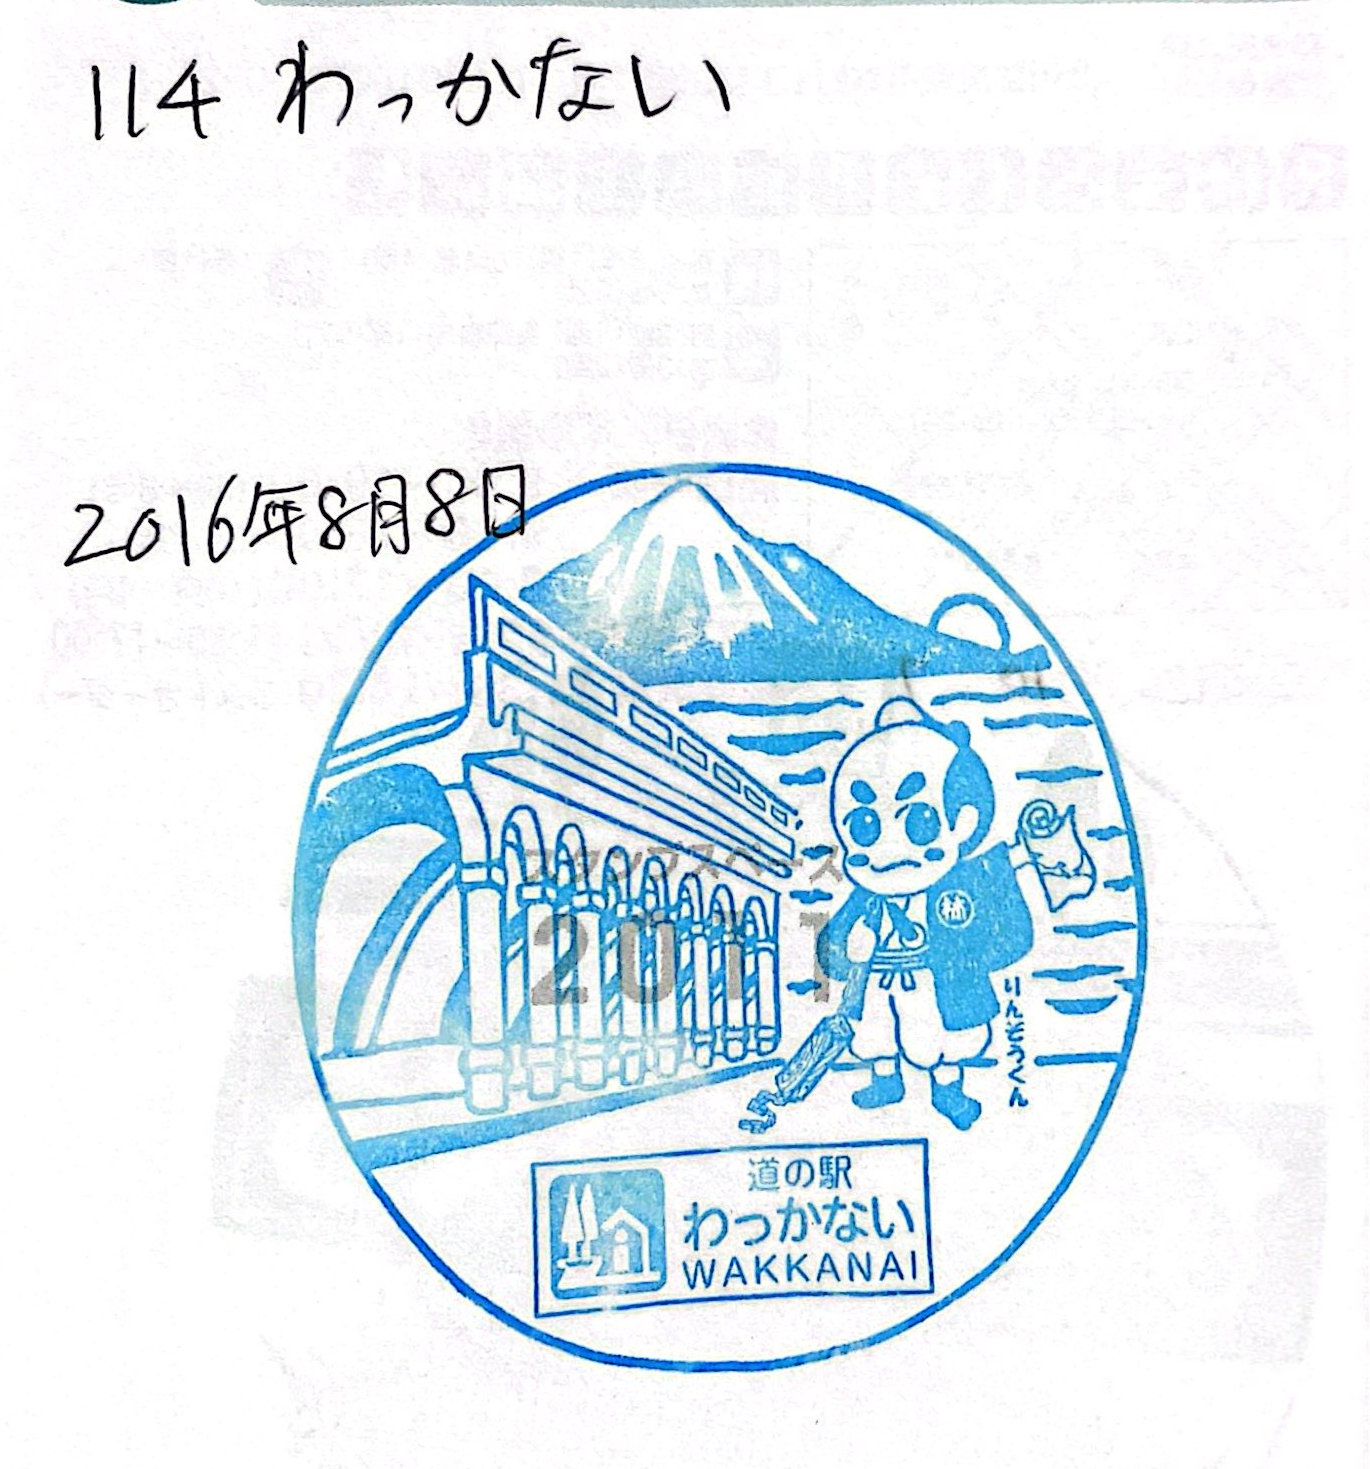 114 わっかない
2016年8月8日
スタンプスペース
2011
林
りんぞうくん
道の駅
わっかない
WAKKANAI